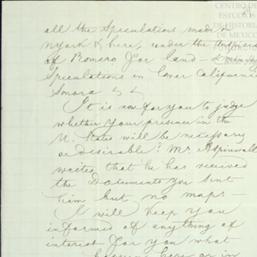 CENTRO DE
ESTUDIOS
DE HISTORIA
DE MEXICO
all the Speculations made in
N york & here, under the
of Romero for land - & mining
Speculations in Lower California
Sonora & &
It is now for you to judge
whether your presence in the
U. States will be necessary
or desirable? Mr Aspinwall
writes that he has received
the Documents you sent
him but no maps -
I will keep you
informed of anything of
interest for you what
here or in